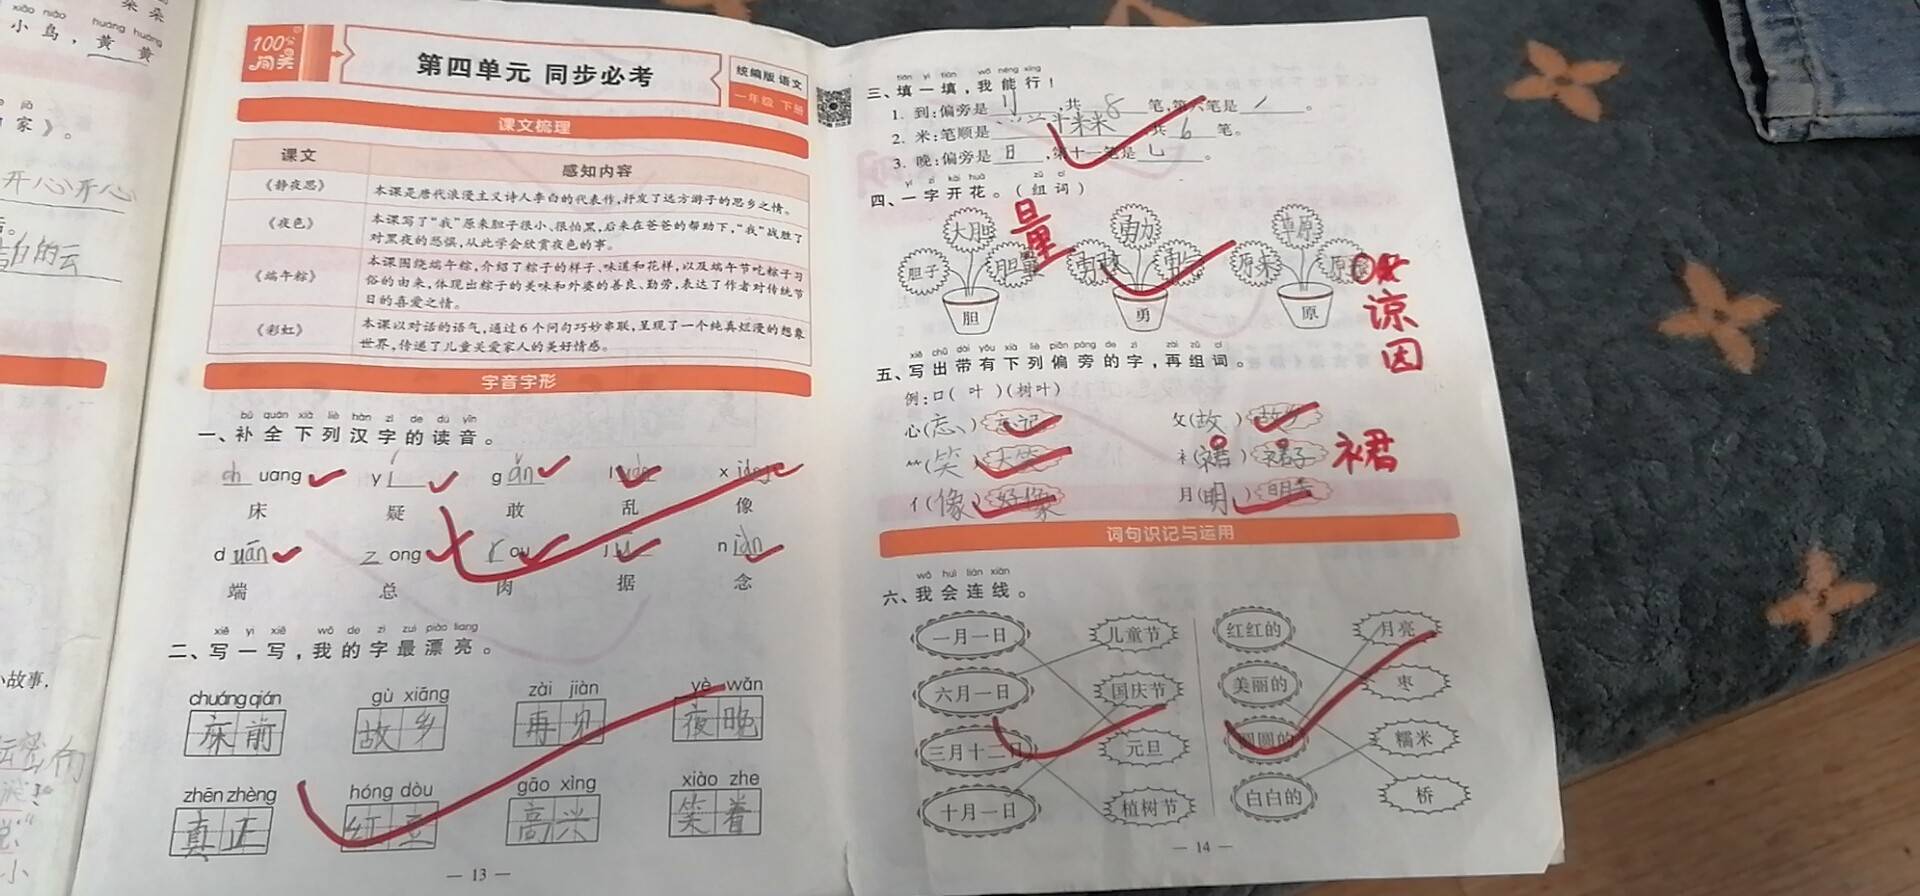 朵朵
xiǎo niǎo
huáng huáng
小鸟,黄黄
家》。
开心开心
白的云
小故事,
100分闯关
第四单元 同步必考
统编版 语文
一年级 下册
课文梳理
课文 感知内容
《静夜思》 本课是唐代浪漫主义诗人李白的代表作,抒发了远方游子的思乡之情。
《夜色》 本课写了“我”原来胆子很小、很怕黑,后来在爸爸的帮助下,“我”战胜了
对黑夜的恐惧,从此学会欣赏夜色的事。
《端午粽》 本课围绕端午粽,介绍了粽子的样子、味道和花样,以及端午节吃粽子习
俗的由来,体现出粽子的美味和外婆的善良、勤劳,表达了作者对传统节
日的喜爱之情。
《彩虹》 本课以对话的语气,通过6个问句巧妙串联,呈现了一个纯真烂漫的想象
世界,传递了儿童关爱家人的美好情感。
字音字形
bǔ quán xià liè hàn zì de dú yīn
一、补全下列汉字的读音。
ch uang y í g ǎn l uàn x iàng
床 疑 敢 乱 像
d uān z ong r ou j ù n iàn
端 总 肉 据 念
xiě yi xiě wǒ de zì zuì piào liang
二、写一写,我的字最漂亮。
chuáng qián gù xiāng zài jiàn yè wǎn
床前 故乡 再见 夜晚
zhēn zhèng hóng dòu gāo xìng xiào zhe
真正 红豆 高兴 笑着
— 13 —
tián yi tián wǒ néng xíng
三、填一填,我能行!
1. 到:偏旁是刂,共8笔,第六笔是㇀。
2. 米:笔顺是 ,共6笔。
3. 晚:偏旁是日,第十一笔是乚。
yí zì kāi huā zǔ cí
四、一字开花。(组词)
大胆 量 勇力 草原
胆子 胆量 勇敢 勇气 原来
胆 勇 原
谅
因
xiě chū dài yǒu xià liè piān páng de zì zài zǔ cí
五、写出带有下列偏旁的字,再组词。
例:口( 叶 )(树叶)
心(忘) 忘记 攵(故) 故乡
⺮(笑) 大笑 衤(裙) 裙子 裙
亻(像) 好像 月(明)
词句识记与运用
wǒ huì lián xiàn
六、我会连线。
一月一日 儿童节 红红的 月亮
六月一日 国庆节 美丽的 枣
三月十二日 元旦 圆圆的 糯米
十月一日 植树节 白白的 桥
— 14 —